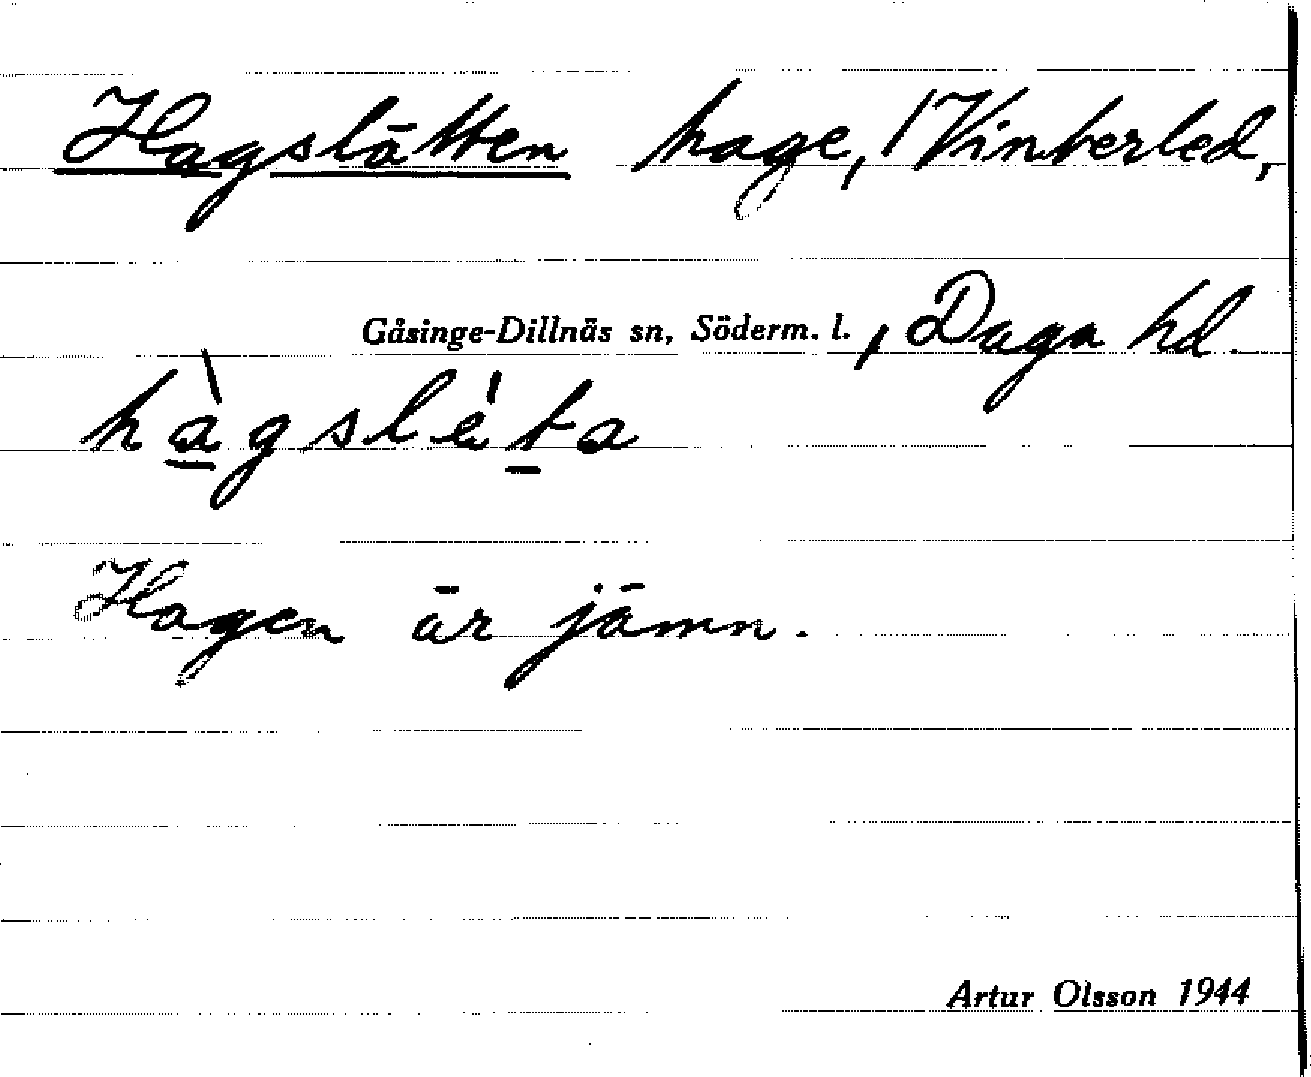 Hagslätten hage, Vinterled,
Gåsinge-Dillnäs sn, Söderm. l., Daga hd.
hàgsléta
Hagen är jämn.
Artur Olsson 1944